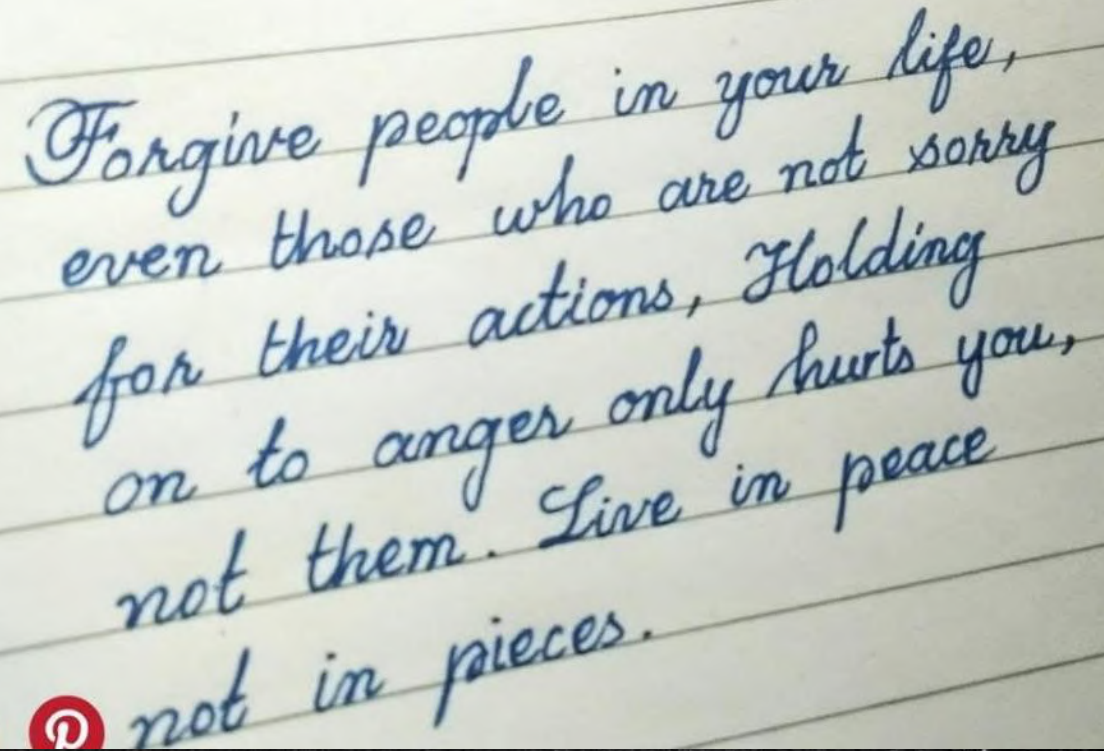 Forgive people in your life,
even those who are not sorry
for their actions, Holding
on to anger only hurts you,
not them. Live in peace
not in pieces.